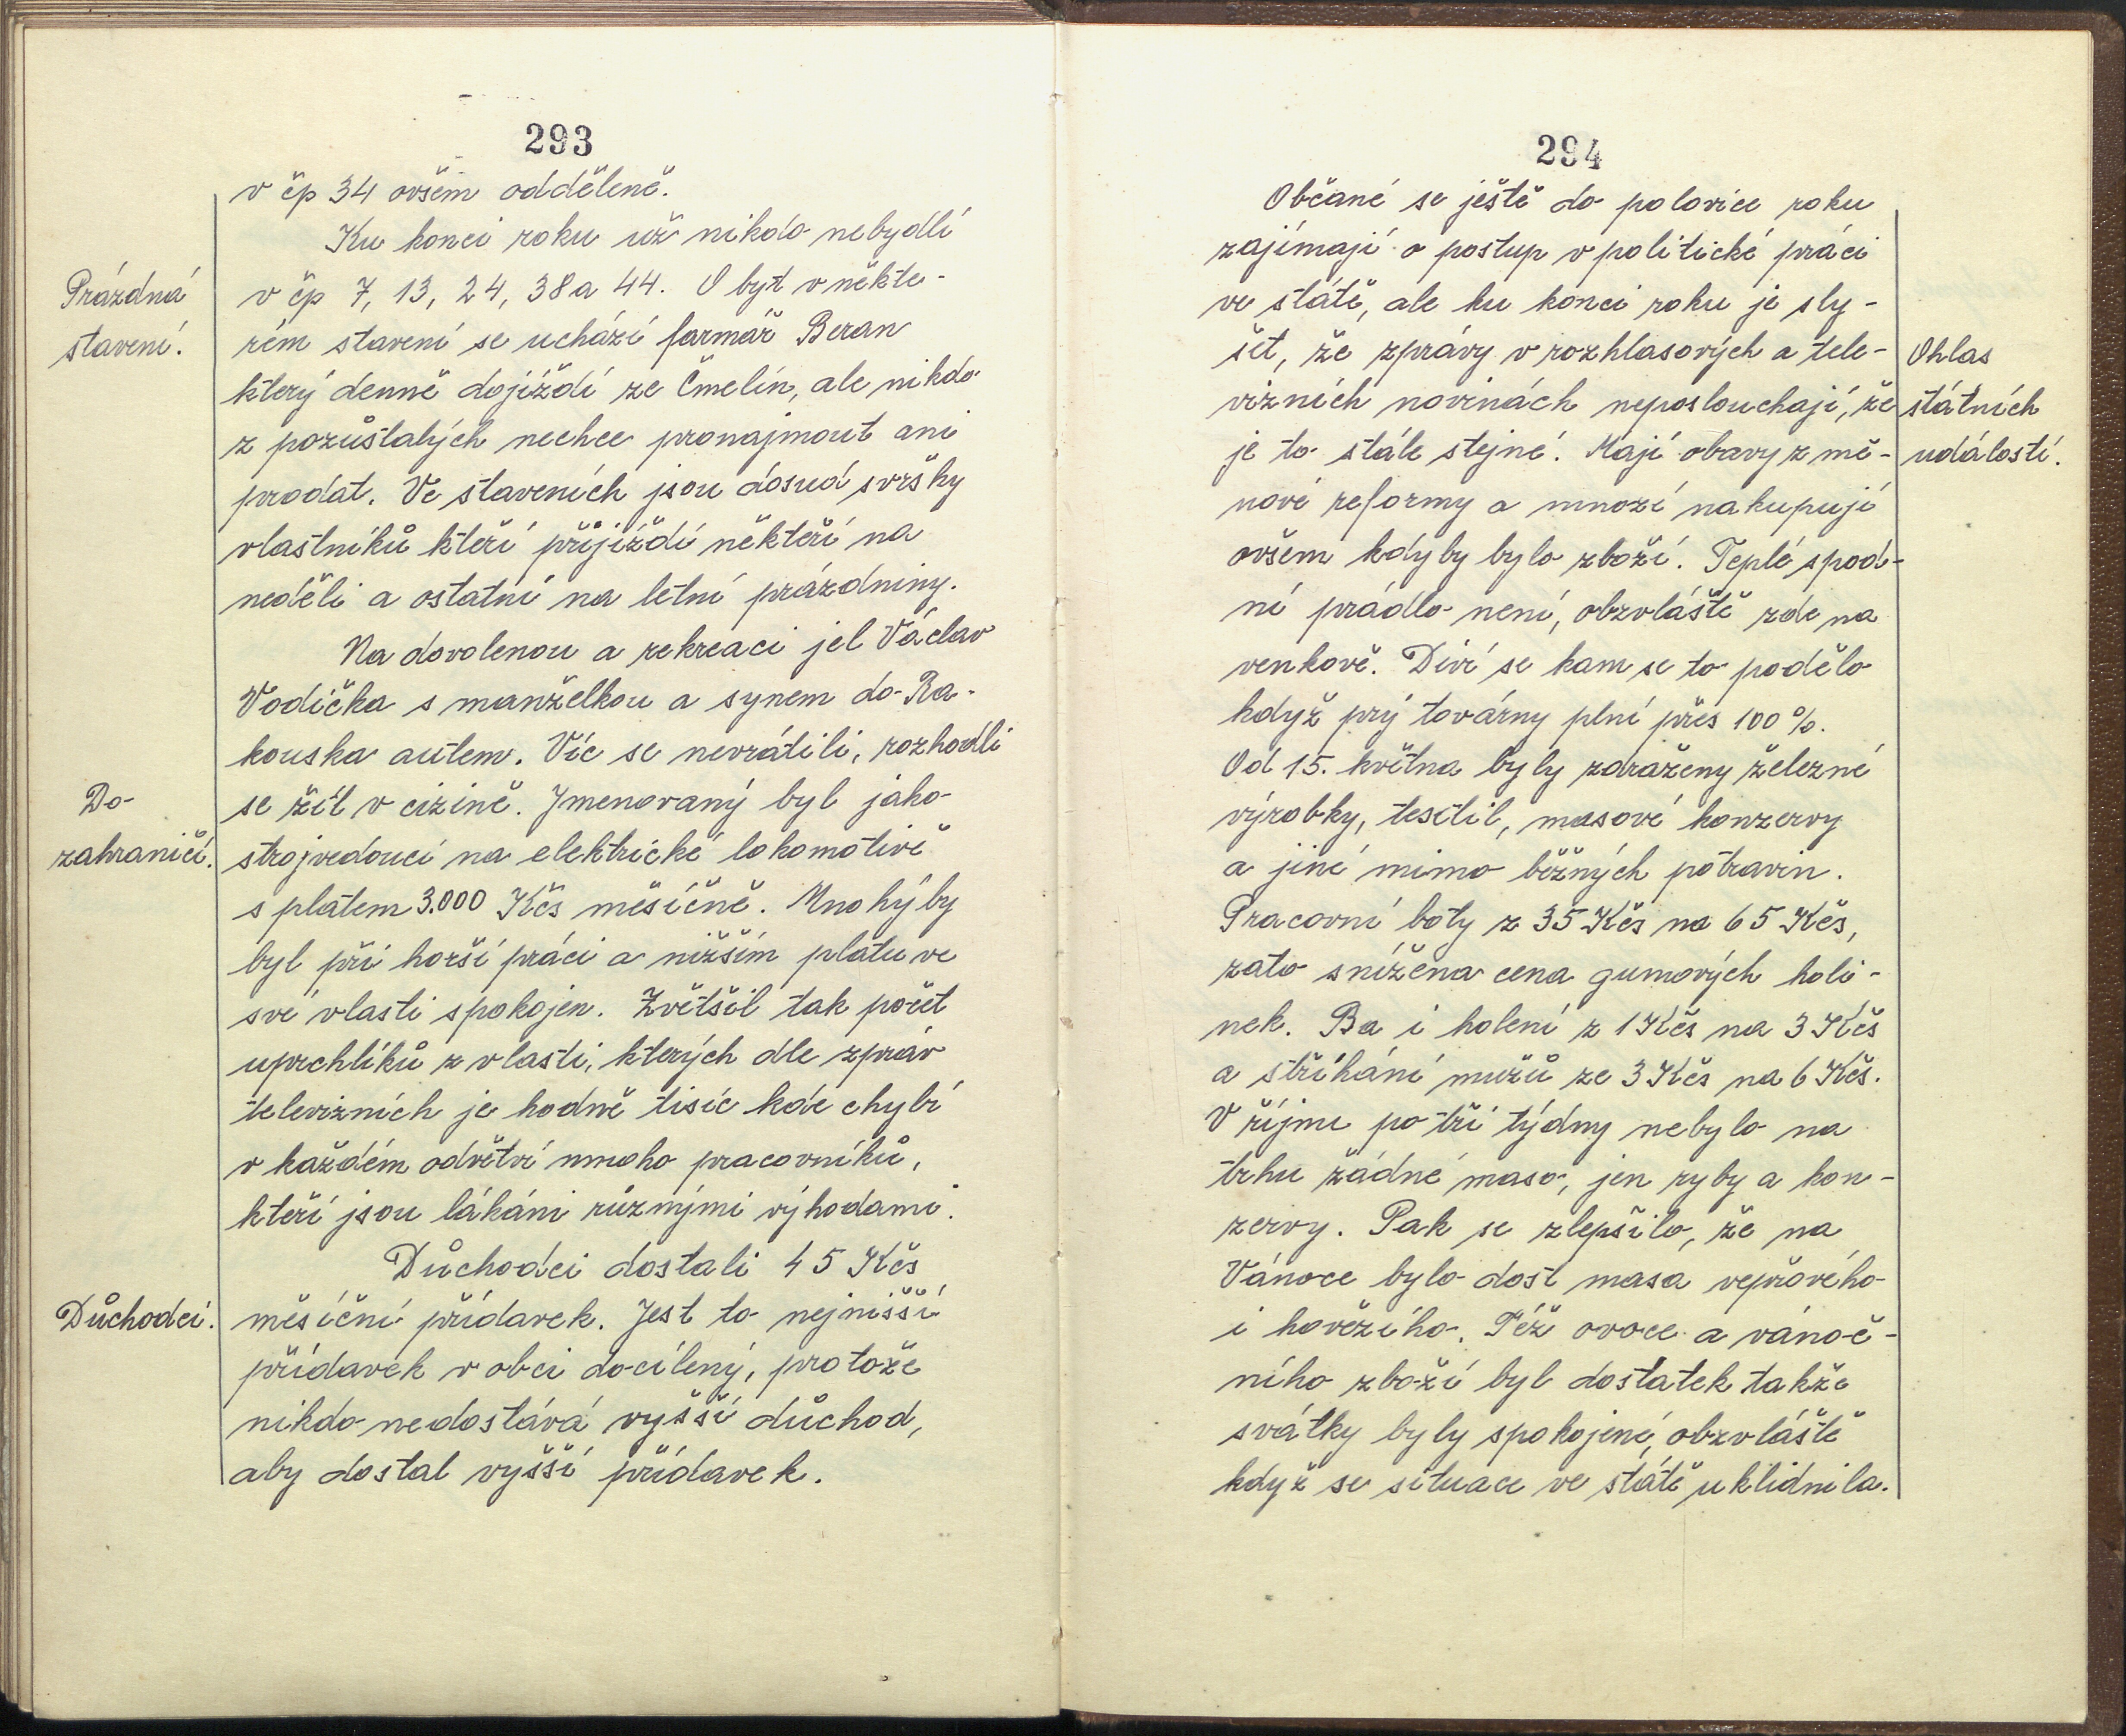 293
v čp 34 ovšem odděleně.
Ku konci roku už nikdo nebydlí
Prázdná
stavení.
v čp 7, 13, 24, 38 a 44. O byt v někte-
rém stavení se uchází farmář Beran
který denně dojíždí ze Čmelín, ale nikdo
z pozůstalých nechce pronajmout ani
prodat. Ve staveních jsou dosud svršky
vlastníků kteří přijíždí někteří na
neděli a ostatní na letní prázdniny.
Na dovolenou a rekreaci jel Václav
Vodička s manželkou a synem do Ra-
kouska autem. Víc se nevrátili, rozhodli
Do
zahraničí.
se žít v cizině. Jmenovaný byl jako
strojvedoucí na elektrické lokomotivě
s platem 3.000 Kčs měsíčně. Mnohý by
byl při horší práci a nižším platu ve
své vlasti spokojen. Zvětšil tak počet
uprchlíků z vlasti, kterých dle zpráv
televizních je hodně tisíc kde chybí
v každém odvětví mnoho pracovníků,
kteří jsou lákáni různými výhodami.
Důchodci dostali 45 Kčs
Důchodci.
měsíční přídavek. Jest to nejnišší
přídavek v obci docílený, protože
nikdo nedostává vyšší důchod,
aby dostal vyšší přídavek.
294
Občané se ještě do polovice roku
zajímají o postup v politické práci
ve státě, ale ku konci roku je sly-
šet, že zprávy v rozhlasových a tele-
vizních novinách neposlouchají, že
je to stále stejné. Mají obavy z mě-
Ohlas
státních
událostí.
nové reformy a mnozí nakupují
ovšem kdyby bylo zboží. Teplé spod-
ní prádlo není, obzvláště zde na
venkově. Diví se kam se to podělo
když prý továrny plní přes 100 %.
Od 15. května byly zdraženy železné
výrobky, testil, masové konzervy
a jiné mimo běžných potravin.
Pracovní boty z 35 Kčs na 65 Kčs,
zato snížena cena gumových holi-
nek. Ba i holení z 1 Kčs na 3 Kčs
a stříhání mužů ze 3 Kčs na 6 Kčs.
V říjnu po tři týdny nebylo na
trhu žádné maso, jen ryby a kon-
zervy. Pak se zlepšilo, že na
Vánoce bylo dost masa vepřového
i hovězího. Též ovoce a vánoč-
ního zboží byl dostatek takže
svátky byly spokojené, obzvláště
když se situace ve státě uklidnila.